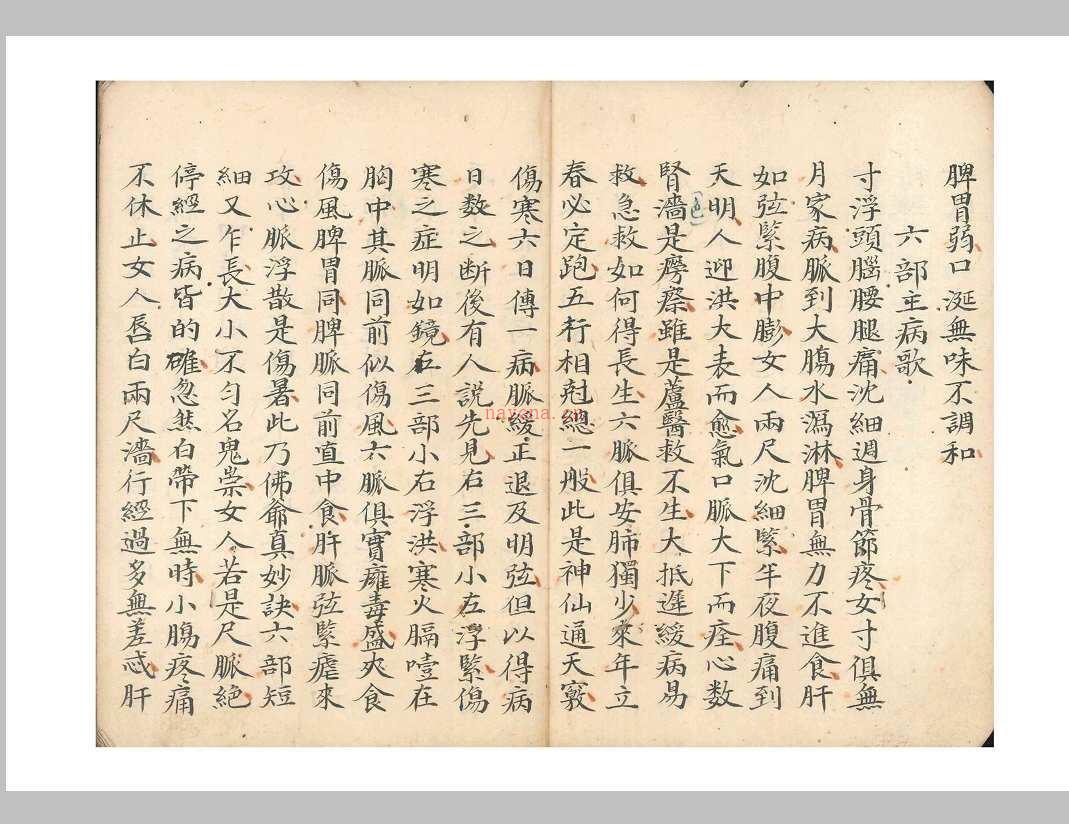 脾胃弱口涎無味不調和
六部主病歌
寸浮頭腦腰腿痛沈細週身骨節疼女寸俱無
月家病脈到大腸水瀉淋脾胃無力不進食肝
如弦緊腹中膨女人兩尺沈細緊半夜腹痛到
天明人迎洪大表而愈氣口脈大下而痊心数
腎濇是癆瘵雖是蘆醫救不生大抵遲緩病易
色
救急救如何得長生六脈俱安肺獨少來年立
春必定跑五行相尅總一般此是神仙通天竅
傷寒六日傳一病脈緩正退及明弦但以得病
日数之断後有人説先見右三部小左浮緊傷
寒之症明如鏡左三部小右浮洪寒火膈噎在
胸中其脈同前似傷風六脈俱實癰毒盛夾食
傷風脾胃同脾脈同前直中食肝脈弦緊瘧來
攻心脈浮散是傷暑此乃佛爺真妙訣六部短
細又乍長大小不匀名鬼祟女人若是尺脈絕
停經之病皆的確忽然白帶下無時小腸疼痛
不休止女人唇白兩尺濇行經過多無差忒肝
nayona.cn